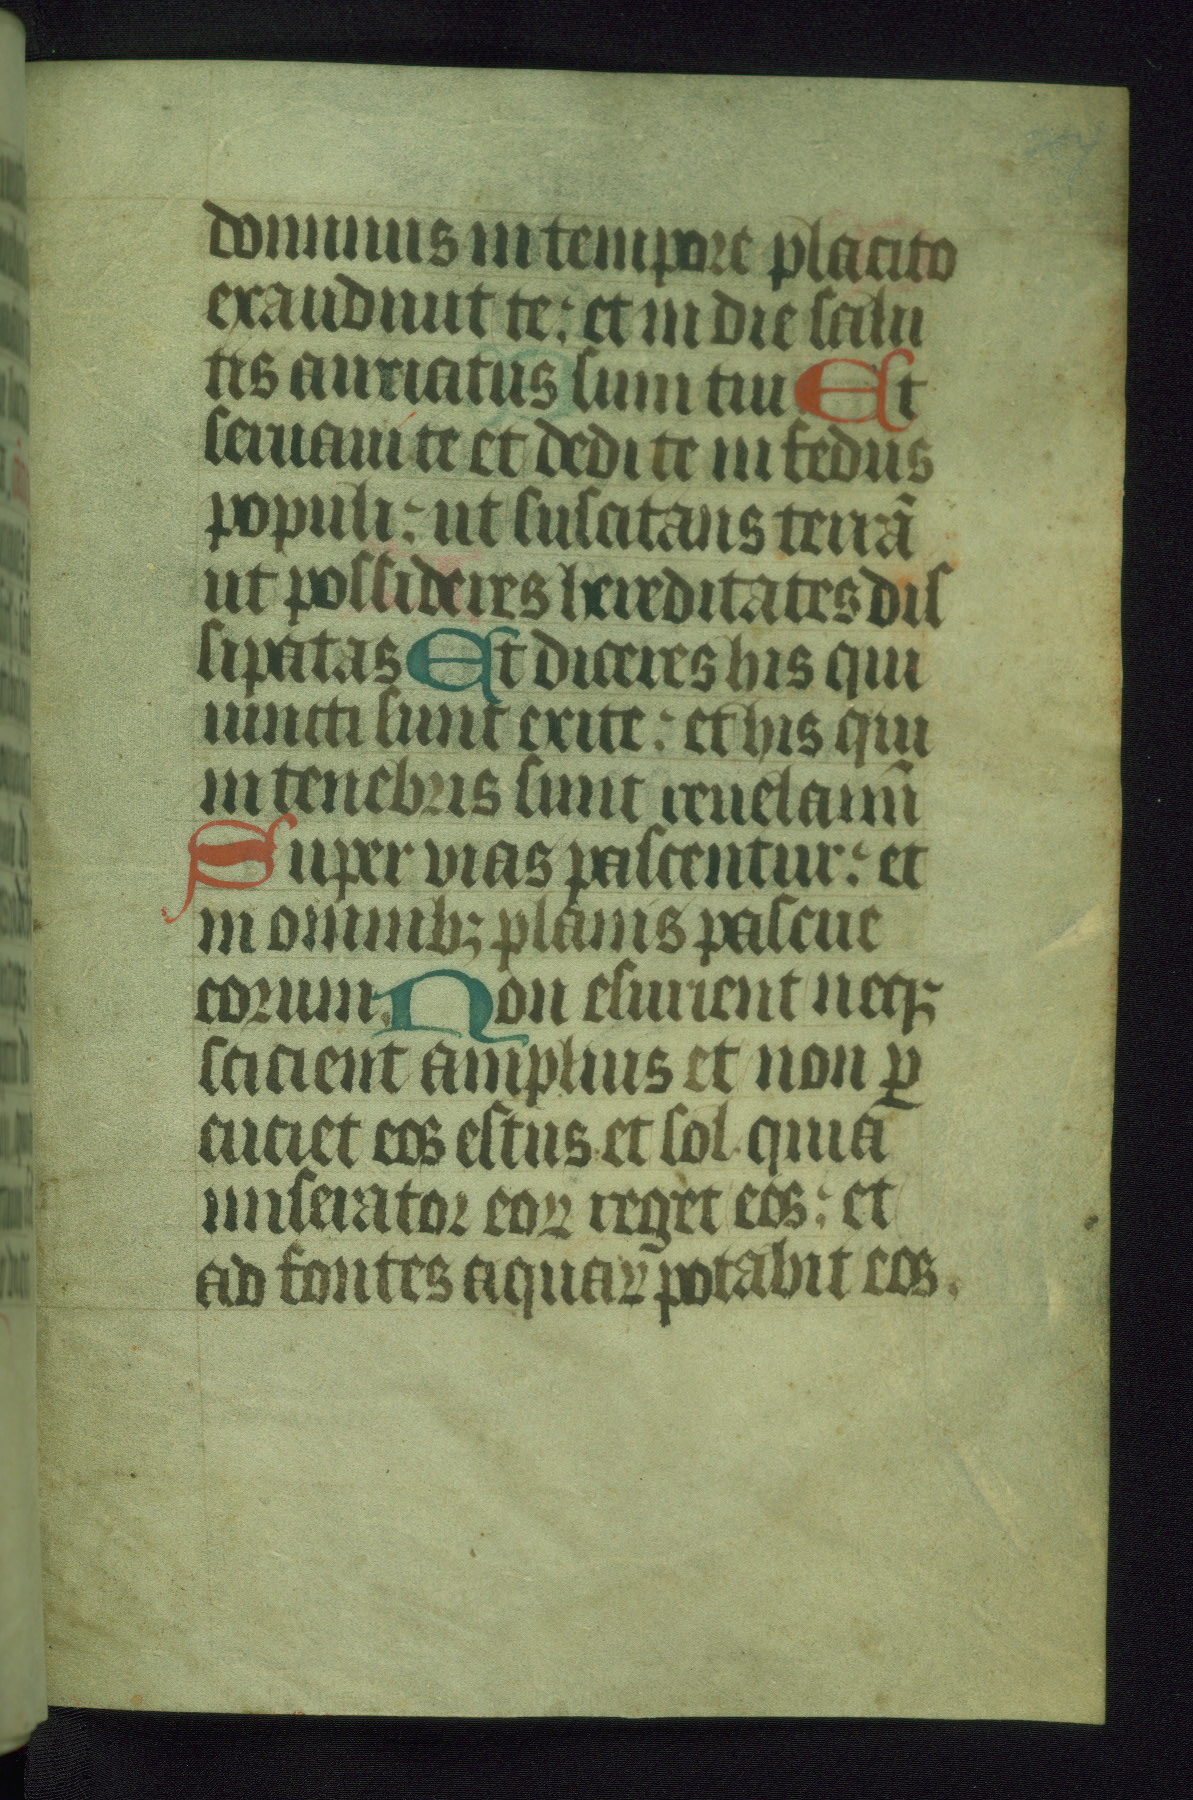 dominus in tempore placito
exaudiuit te: et in die salu
tis auxiatus sum tui Et
seruaui te et dedi te in fedus
populi: ut suscitans terrā
ut possideres hereditates dis
sipatas Et diceres his qui
uincti sunt exite: et his qui
in tenebris sunt reuelamī
Super vias pascentur: et
in omnibꝫ planis pascue
eorum. Non esurient neqꝫ
scicient amplius et non ꝑ
cuciet eos estus et sol quia
miserator eoꝝ reget eos: et
ad fontes aquaꝝ potabit eos.